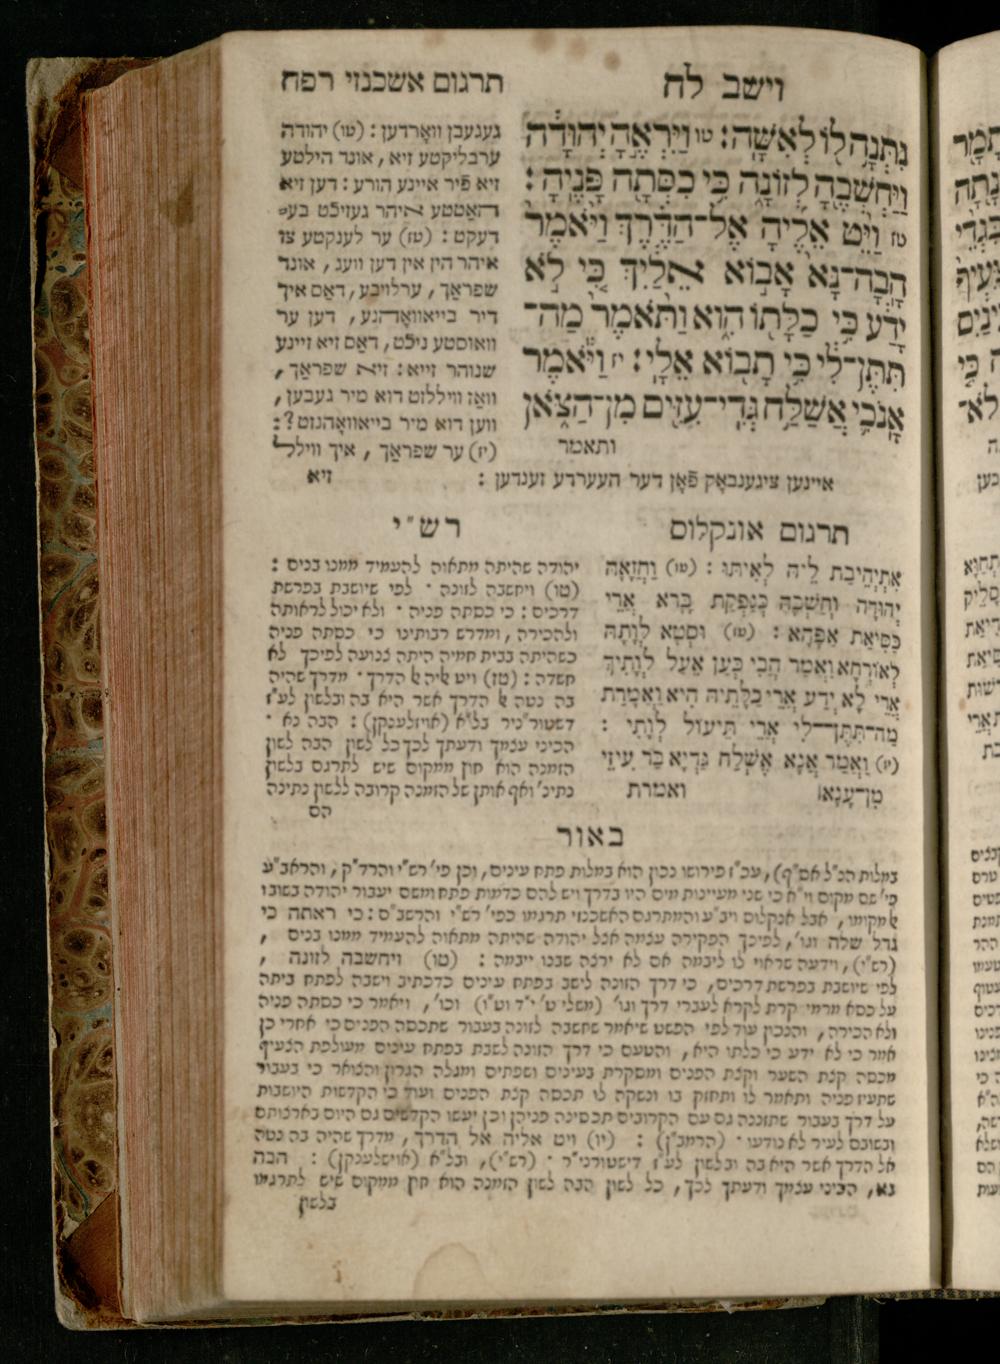 וישב לח
תרגום אשכנזי רפח
נִתְּנָה לוֹ לְאִשָּׁה: טו וַיִּרְאֶהָ יְהוּדָה
וַיַּחְשְׁבֶהָ לְזוֹנָה כִּי כִסְּתָה פָּנֶיהָ:
טז וַיֵּט אֵלֶיהָ אֶל־הַדֶּרֶךְ וַיֹּאמֶר
הָבָה־נָּא אָבוֹא אֵלַיִךְ כִּי לֹא
יָדַע כִּי כַלָּתוֹ הִוא וַתֹּאמֶר מַה־
תִּתֶּן־לִי כִּי תָבוֹא אֵלָי: יז וַיֹּאמֶר
אָנֹכִי אֲשַׁלַּח גְּדִי־עִזִּים מִן־הַצֹּאן
ותאמר
געגעבן וואָרדען: (טו) יהודה
ערבליקטע זיא, אונד הילטע
זיא פֿיר איינע הורע: דען זיא
האַטטע איהר געזיכֿט בע־
דעקט: (טז) ער לענקטע צו
איהר הין אין דען וועג, אונד
שפראַך, ערלויבע, דאַס איך
דיר בייאוואָהנע, דען ער
וואוסטע ניכֿט, דאַס זיא זיינע
שנוהר זייא: זיא שפראַך,
וואַז וויללזט דוא מיר געבען,
ווען דוא מיר בייאוואָהנזט?:
(יז) ער שפראַך, איך ווילל
איינען ציגענבאָק פֿאָן דער העערדע זענדען:
זיא
תרגום אונקלוס
אִתְיְהִיבַת לֵיהּ לְאִיתּוּ: (טו) וַחֲזָאָהּ
יְהוּדָה וְחַשְׁבַהּ כְּנַפְקַת בָּרָא אֲרֵי
כַסִּיאַת אַפָּהָא: (טז) וּסְטָא לְוָתָהּ
לְאוֹרְחָא וַאֲמַר הָבִי כְעַן אֵעַל לְוָתִיךְ
אֲרֵי לָא יְדַע אֲרֵי כַלָּתֵיהּ הִיא וַאֲמֶרַת
מַה־תִּתֶּן־לִי אֲרֵי תֵיעוּל לְוָתִי:
(יז) וַאֲמַר אֲנָא אֶשְׁלַח גַּדְיָא בַּר עִיזֵּי
מִן־עָנָא
ואמרת
רש"י
יהודה שהיתה מתאוה להעמיד ממנו בנים:
(טו) ויחשבה לזונה · לפי שיושבת בפרשת
דרכים: כי כסתה פניה · ולא יכול לראותה
ולהכירה, ומדרש רבותינו כי כסתה פניה
כשהיתה בבית חמיה היתה צנועה לפיכך לא
חשדה: (טז) ויט אליה אל הדרך · מדרך שהיה
בה נטה אל הדרך אשר היא בה ובלשון לע"ז
דשטור"ניר בל"א (אויזלענקן): הבה נא ·
הכיני עצמך ודעתך לכך כל לשון הבה לשון
הזמנה הוא חוץ ממקום שיש לתרגם בלשון
נתינ' ואף אותן של הזמנה קרובה ללשון נתינה
הם
באור
במלות הנ"ל אס"ף), עכ"ז פירושו נכון הוא במלות פתח עינים, וכן פי' רש"י והרד"ק, והראב"ע
פי' שם מקום וי"א כי שני מעיינות מים היו בדרך ויש להם כדמות פתח ומשם יעבור יהודה בשובו
אל מקומו, אבל אנקלוס ויב"ע והמתרגם האשכנזי תרגמו כפי' רש"י והרשב"ם: כי ראתה כי
גדל שלה וגו', לפיכך הפקירה עצמה אצל יהודה שהיתה מתאוה להעמיד ממנו בנים,
(רש"י), וידעה שראוי לו ליבמה אם לא ירצה שבנו ייבמה: (טו) ויחשבה לזונה,
לפי שיושבת בפרשת דרכים, כי דרך הזונה לישב בפתח עינים כדכתיב וישבה לפתח ביתה
על כסא מרמי קרת לקרא לעברי דרך וגו' (משלי ט' י"ד וט"ו) וכו', ויאמר כי כסתה פניה
ולא הכירה, והנכון עוד לפי הפשט שיאמר שחשבה לזונה בעבור שתכסה הפנים כי אחרי כן
אמר כי לא ידע כי כלתו היא, והטעם כי דרך הזונה לשבת בפתח עינים מעולפת הצעיף
מכסה קצת השער וקצת הפנים ומסקרת בעינים ושפתים ומגלה הגרון והצואר כי בעבור
שתעיז פניה ותאמר לו ותחזק בו ונשקה לו תכסה קצת הפנים ועוד כי הקדשות היושבות
על דרך בעבור שתזננה גם עם הקרובים תכסינה פניהן וכן יעשו הקדשים גם היום בארצותם
ובשובם לעיר לא נודעו · (הרמב"ן): (יו) ויט אליה אל הדרך, מדרך שהיה בה נטה
אל הדרך אשר היא בה ובלשון לע"ז דישטורני"ר · (רש"י), ובל"א (אויסלענקן): הבה
נא, הכיני עצמך ודעתך לכך, כל לשון הבה לשון הזמנה הוא חוץ ממקום שיש לתרגמו
בלשון